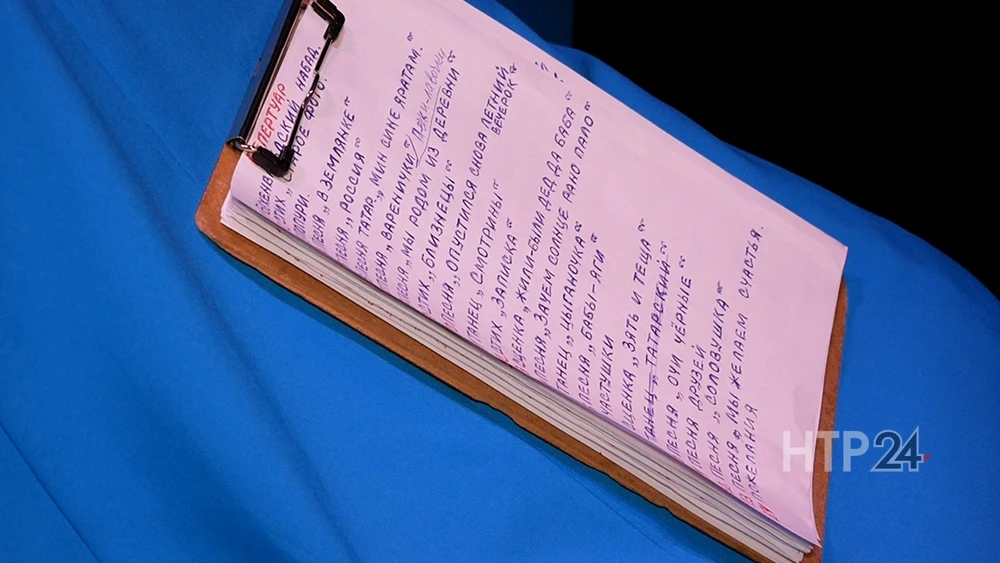 ПЕРТУАР
СКИЙ НАБАД.
СТИХ „СТАРОЕ ФОТО.
ПОПУРИ.
ПЕСНЯ „В ЗЕМЛЯНКЕ“
ПЕСНЯ „РОССИЯ“
ПЕСНЯ ТАТАР „МИН СИНЕ ЯРАТАМ.“
ПЕСНЯ „ВАРЕНИЧКИ“
ПЕСНЯ „МЫ РОДОМ ИЗ ДЕРЕВНИ“
СТИХ „БЛИЗНЕЦЫ“
ПЕСНЯ „ОПУСТИЛСЯ СНОВА ЛЕТНИЙ ВЕЧЕРОК“
ТАНЕЦ „СМОТРИНЫ“
СТИХ „ЗАПИСКА“
СЦЕНКА „ЖИЛИ-БЫЛИ ДЕД ДА БАБА“
ПЕСНЯ „ЗАЧЕМ СОЛНЦЕ РАНО ПАЛО“
ТАНЕЦ „ЦЫГАНОЧКА“
ПЕСНЯ „БАБЫ-ЯГИ
ЧАСТУШКИ
СЦЕНКА „ЗЯТЬ И ТЕЩА“
ТАНЕЦ „ТАТАРСКИЙ.“
ПЕСНЯ „ОЧИ ЧЁРНЫЕ“
ПЕСНЯ ДРУЗЕЙ
ПЕСНЯ „СОЛОВУШКА“
ПЕСНЯ „МЫ ЖЕЛАЕМ СЧАСТЬЯ.
ПОЖЕЛАНИЯ
НТР24